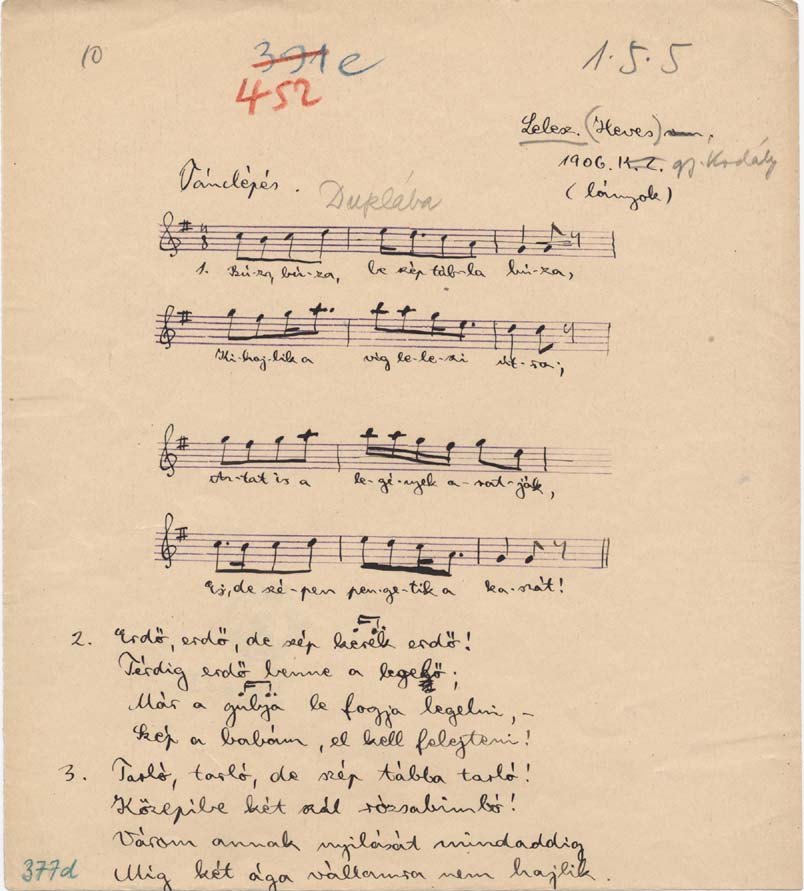 10
391e
452
1.5.5
Lelesz. (Heves)
1906. gy. Kodály
(lányok)
Tánclépés.
Duplába
1. Bú-za, bú-za, be szép táb-la bú-za,
Ki-haj-lik a vig le-le-szi út-ra;
Az-tat is a le-gé-nyek a-rat-ják,
Ej, de szé-pen pen-ge-tik a ka-szát!
2. Erdő, erdő, de szép kerek erdő!
Térdig erdő benne a legelő;
Már a gulya le fogja legelni, –
Szép a babám, el kell felejteni!
3. Tarló, tarló, de szép tábba tarló!
Közepibe két szál rózsabimbó!
Várom annak nyilását mindaddig
Mig két ága vállamra nem hajlik.
377d